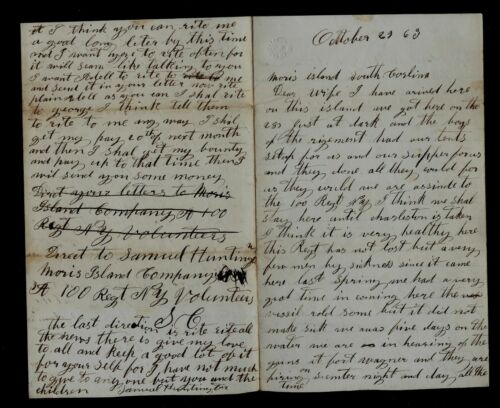 October 29 63
Moris island South Corlina
Dear Wife I have arived here
on this island we got here on the
28 Just at dark and the boys
of the rigement had our tents
setup for us and our supper for us
and they done all they could for
us they would we are assinde to
the 100 Regt NY I think we shal
stay here until charleston is taken
I think it is very healthy here
this Regt has not lost but a very
few men by sickness since it came
here last Spring we had a very
good time in coming here the
vessil rold some but it did not
make sick we was five days on the
water we are in hearing of the
guns at fort wagner and they are
firing on sumter night and day all the
time
it I think you can rite me
a good long liter by this time
now I want you to rite often for
it will seam like talking to you
I want Adell to rite to me
and send it in your letter now rite
plain Adell as you can I shal rite
to george I think tell them
to rite to me any way I shal
get my pay 20th of next month
and then I shal get my bounty
and pay up to that time then I
will send you some money
Direct your letters to Moris
Island Company A 100
Regt NY Volunteers
Direct to Samuel Hunting
Moris Island Company
A 100 Regt NY Volunteers
S C
the last direction is rite rite all
the news there is give my love
to all and keep a good lot of it
for your self for I have not much
to give to any one but you and the
children Samuel Huntington